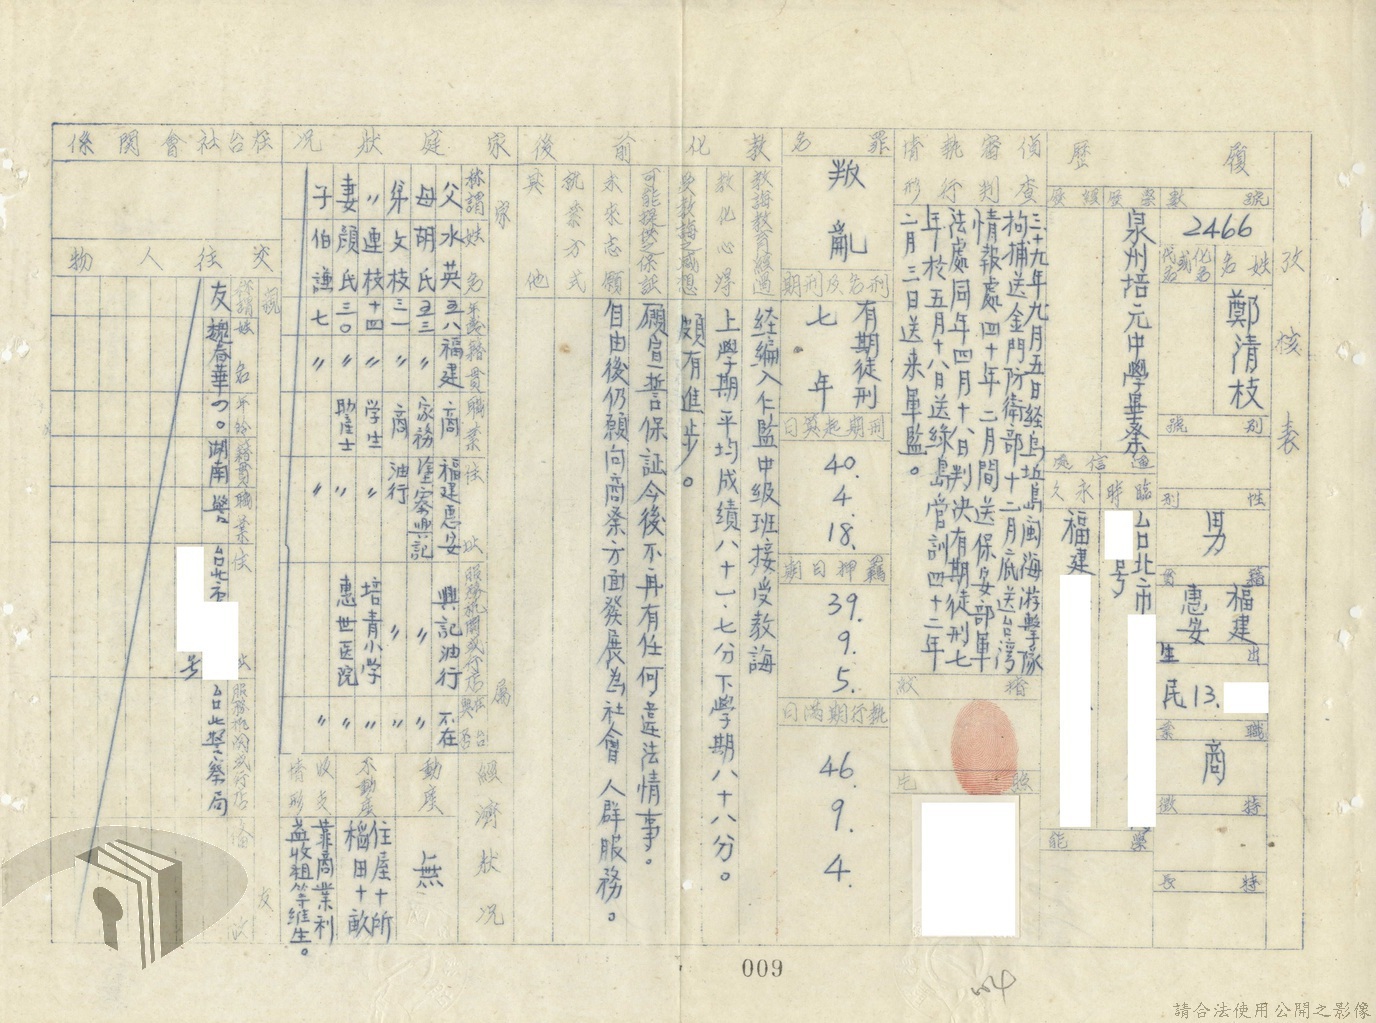 攷核表
履歷
號數
2466
姓名
化名或代名
鄭清枝
別號
性別
男
籍貫
福建
惠安
出生
民13.
職業
商
特徵
特長
學歷經歷
泉州培元中學畢業
通信處
臨時
永久
台北市
号
福建
偵查審判執行情形
三十九年九月五日経烏坵島閩海游擊隊
拘捕送金門防衛部十二月底送台灣
情報處四十年二月間送保安部軍
法處同年四月十八日判決有期徒刑七
年於五月十八日送綠島管訓四十二年
二月三日送来軍監。
指狀
照
罪名
叛亂
刑名及刑期
有期徒刑
七年
刑期起算日
40.4.18.
羈押日期
39.9.5.
執行期滿日
46.9.4.
教化前後
教誨教育經過
経編入仁監中級班接受教誨
教化心得
上學期平均成績八十一.七分下學期八十八分。
受教誨之感想
頗有進步。
可能提供之保証
願宣誓保証今後不再有任何違法情事。
未來志願
自由後仍願向商業方面發展為社會人群服務。
就業方式
其他
家庭狀况
家屬
稱謂 姓名 年齡 籍貫 職業 住址 服務機關或行店 在台與否
父 水英 五八 福建 商 福建惠安 興記油行 不在
母 胡氏 五三 〃 家務 〃 〃
弟 文枝 三一 〃 商 油行 〃 〃
〃 連枝 十四 〃 学生 〃 培青小学 〃
妻 顏氏 三〇 〃 助產士 〃 惠世医院 〃
子 伯謙 七 〃 〃 〃
經濟狀况
動產
無
不動產
住屋十所
稲田十畝
收支情形
靠商業利
益收租等維生。
在台社會關係
交往人物
親友
稱謂 姓名 年齡 籍貫 職業 住址 服務機關或行店
友 魏春華 湖南 警 台北市 号 台北警察局
009
請合法使用公開之影像